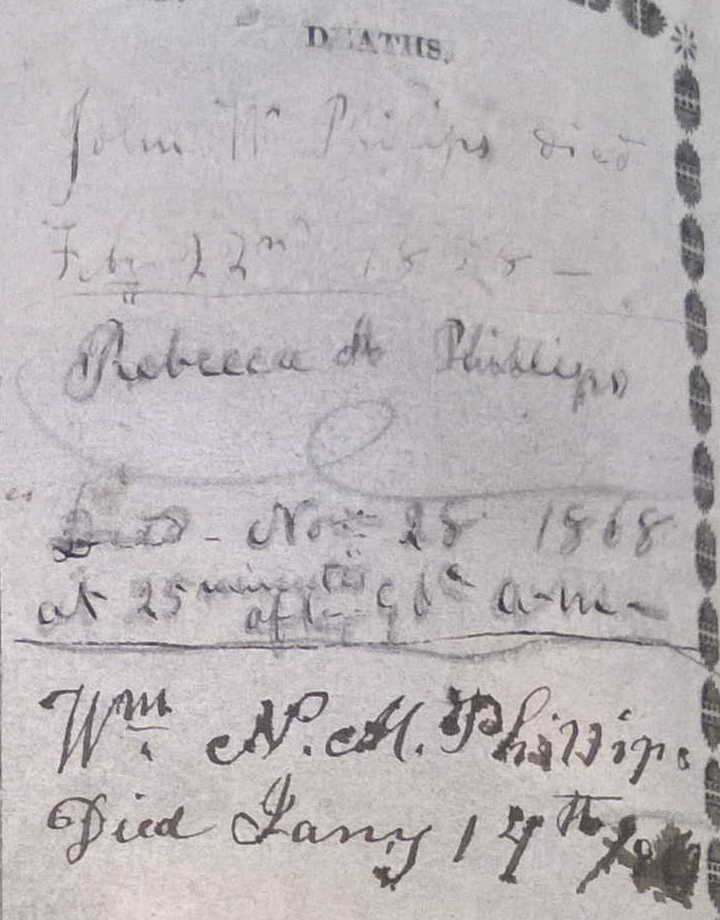 DEATHS.
John W Philips died
Feby 22nd 18 8 –
Rebecca Phillips
Died - Nov 28 1868
at 25 minutes
after a-m-
Wm N. M. Phillips
Died Jany 17th